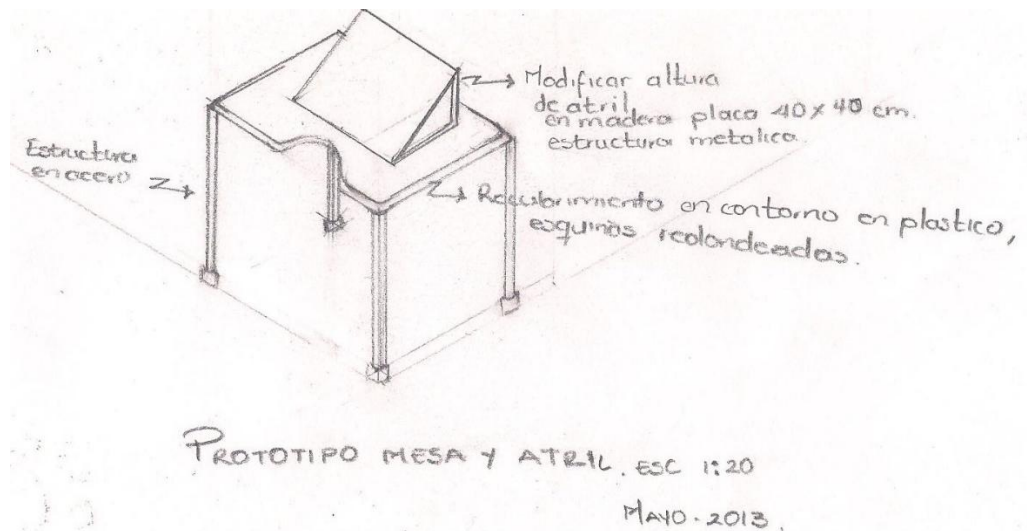 Modificar altura
de atril
en madera placa 40 x 40 cm.
estructura metalica.
Estructura
en acero
Recubrimiento en contorno en plastico,
esquinas redondeadas.
PROTOTIPO MESA Y ATRIL. ESC 1:20
MAYO. 2013.